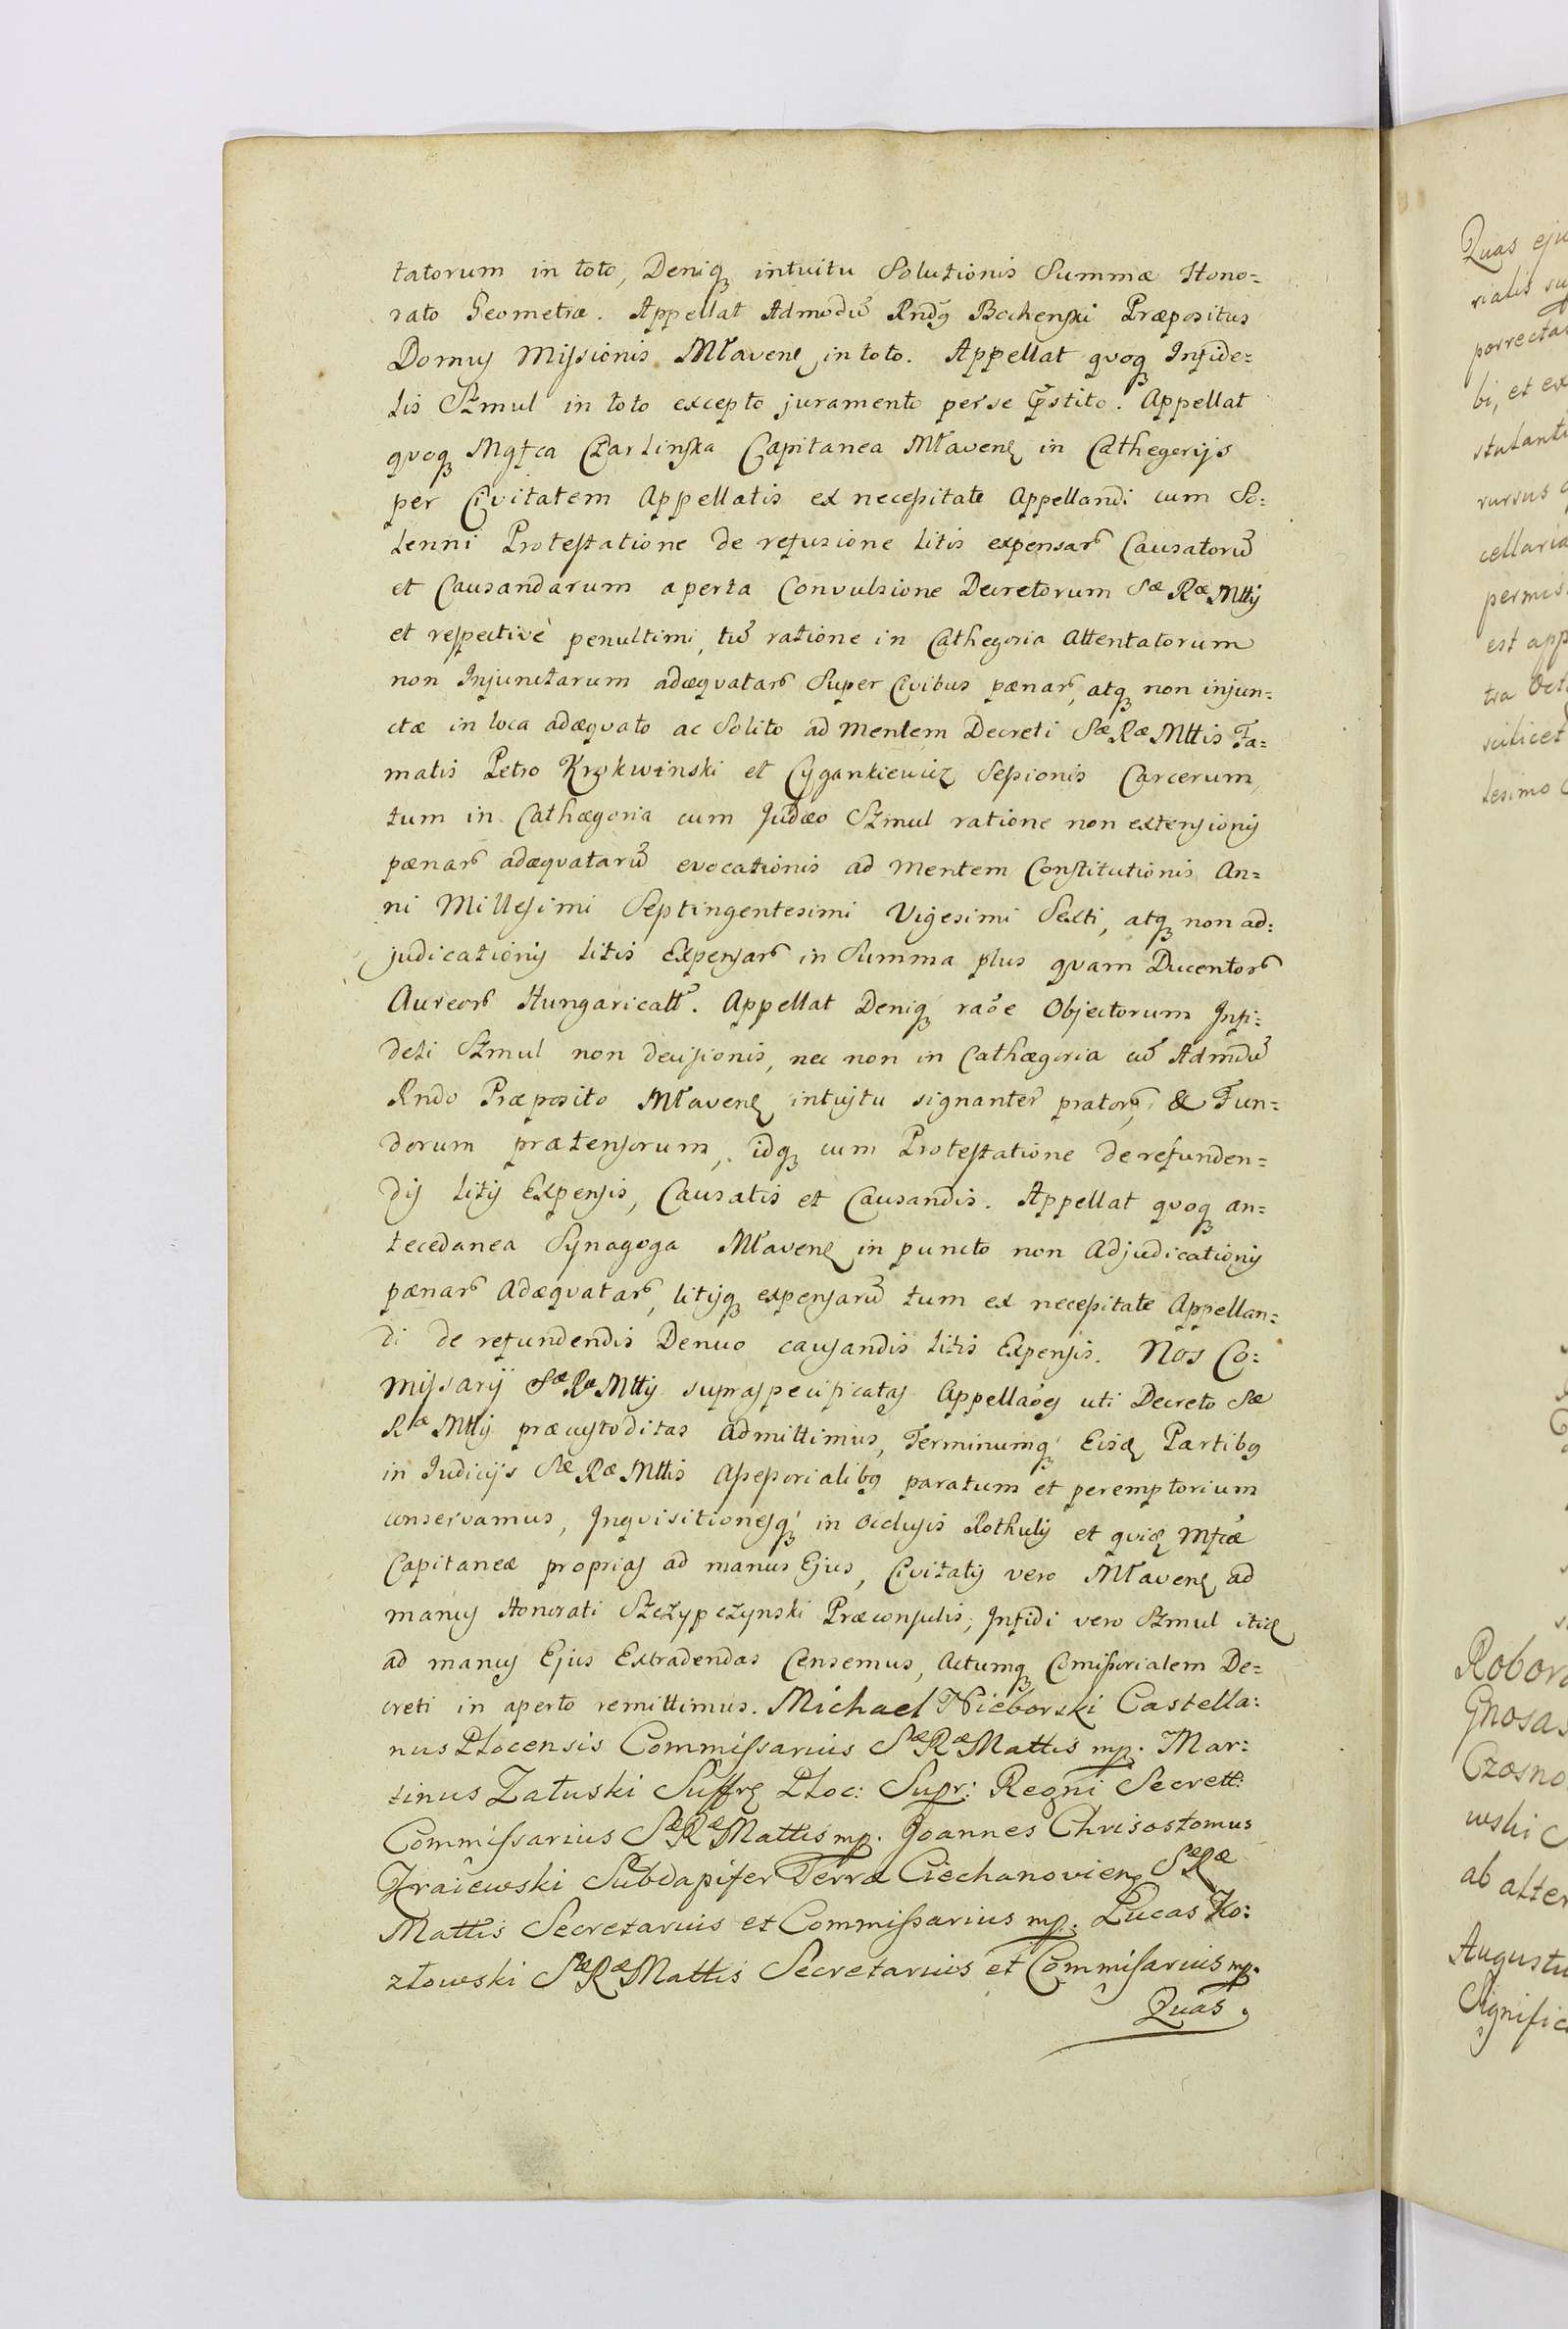 tatorum in toto, Deniq₃ intuitu Solutionis Summæ Hono=
rato Geometræ. Appellat Admodū Rndꝯ Bochenski Præpositus
Domus Missionis Mławenẽ in toto. Appellat qvoq₃ Infide=
lis Szmul in toto excepto juramento per se p̃stito. Appellat
qvoq₃ Mgfca Czarlinska Capitanea Mławenẽ in Cathegorijs
per Civitatem Appellatis ex necessitate Appellandi cum So=
lenni Protestatione de refusione litis expensarũ Causatorũ
et Causandarum aperta Convulsione Decretorum Sæ Ræ Mttis
et respectivè penultimi, tũ ratione in Cathegoria Attentatorum
non Injunctarum adæqvatarũ Super Civibus pænarũ, atq₃ non injun=
ctæ in loca adæqvato ac Solito ad mentem Decreti Sæ Ræ Mttis Fa=
matis Petro Krokwinski et Cygankiewicz Sessionis Carcerum,
tum in Cathægoria cum Judæo Szmul ratione non extensionis
pænarũ adæqvatarũ evocationis ad mentem Constitutionis An=
ni Millesimi Septingentesimi Vigesimi Sexti, atq₃ non ad=
judicationis litis Expensarũ in Summa plus qvam Ducentorũ
Aureorũ Hungaricalĩ. Appellat Deniq₃ raõe Objectorum Infi=
deli Szmul non decisionis, nec non in Cathægoria cũ Admdũ
Rndo Præposito Mławenẽ intujtu signanter pratorũ, & Fun=
dorum prætensorum, idq₃ cum Protestatione de refunden=
dis litis Expensis, Causatis et Causandis. Appellat qvoq₃ an=
tecedanea Synagoga Mławenẽ in puncto non Adjudicationis
pænarũ Adæqvatarũ, litisq₃ expensarũ tum ex necessitate Appellan=
di de refundendis Denuo causandis litis Expensis. Nos Co=
missarij Sæ Ræ Mttis supraspecificatas Appellaões uti Decreto Sæ
Ræ Mttis præcustoditas admittimus, Terminumq₃ Eisdẽ Partibꝯ
in Judicijs Sæ Ræ Mttis Assessorialibꝯ paratum et peremptorium
conservamus, Inqvisitionesq₃ in occlusis Rothulis et qvidẽ Mfcæ
Capitaneæ proprias ad manus Ejus, Civitatis vero Mławenẽ ad
manus Honorati Szczypczynski Præconsulis, Infidi vero Szmul itidẽ
ad manus Ejus Extradendas Censemus, Actumq₃ Comissorialem De=
creti in aperto remittimus. Michael Nieborski Castella=
nus Płocensis Commissarius Sæ Ræ Mattis mp. Mar=
tinus Załuski Suffrẽ Płoc: Supr: Regni Secrett:
Commissarius Sæ Ræ Mattis mp. Joannes Chrisostomus
Kraiewski Subdapifer Terræ Ciechanovienẽ Sæ Ræ
Mattis Secretarius et Commissarius mp. Lucas Ko=
złowski Sæ Ræ Mattis Secretarius et Commissarius mp.
Quas